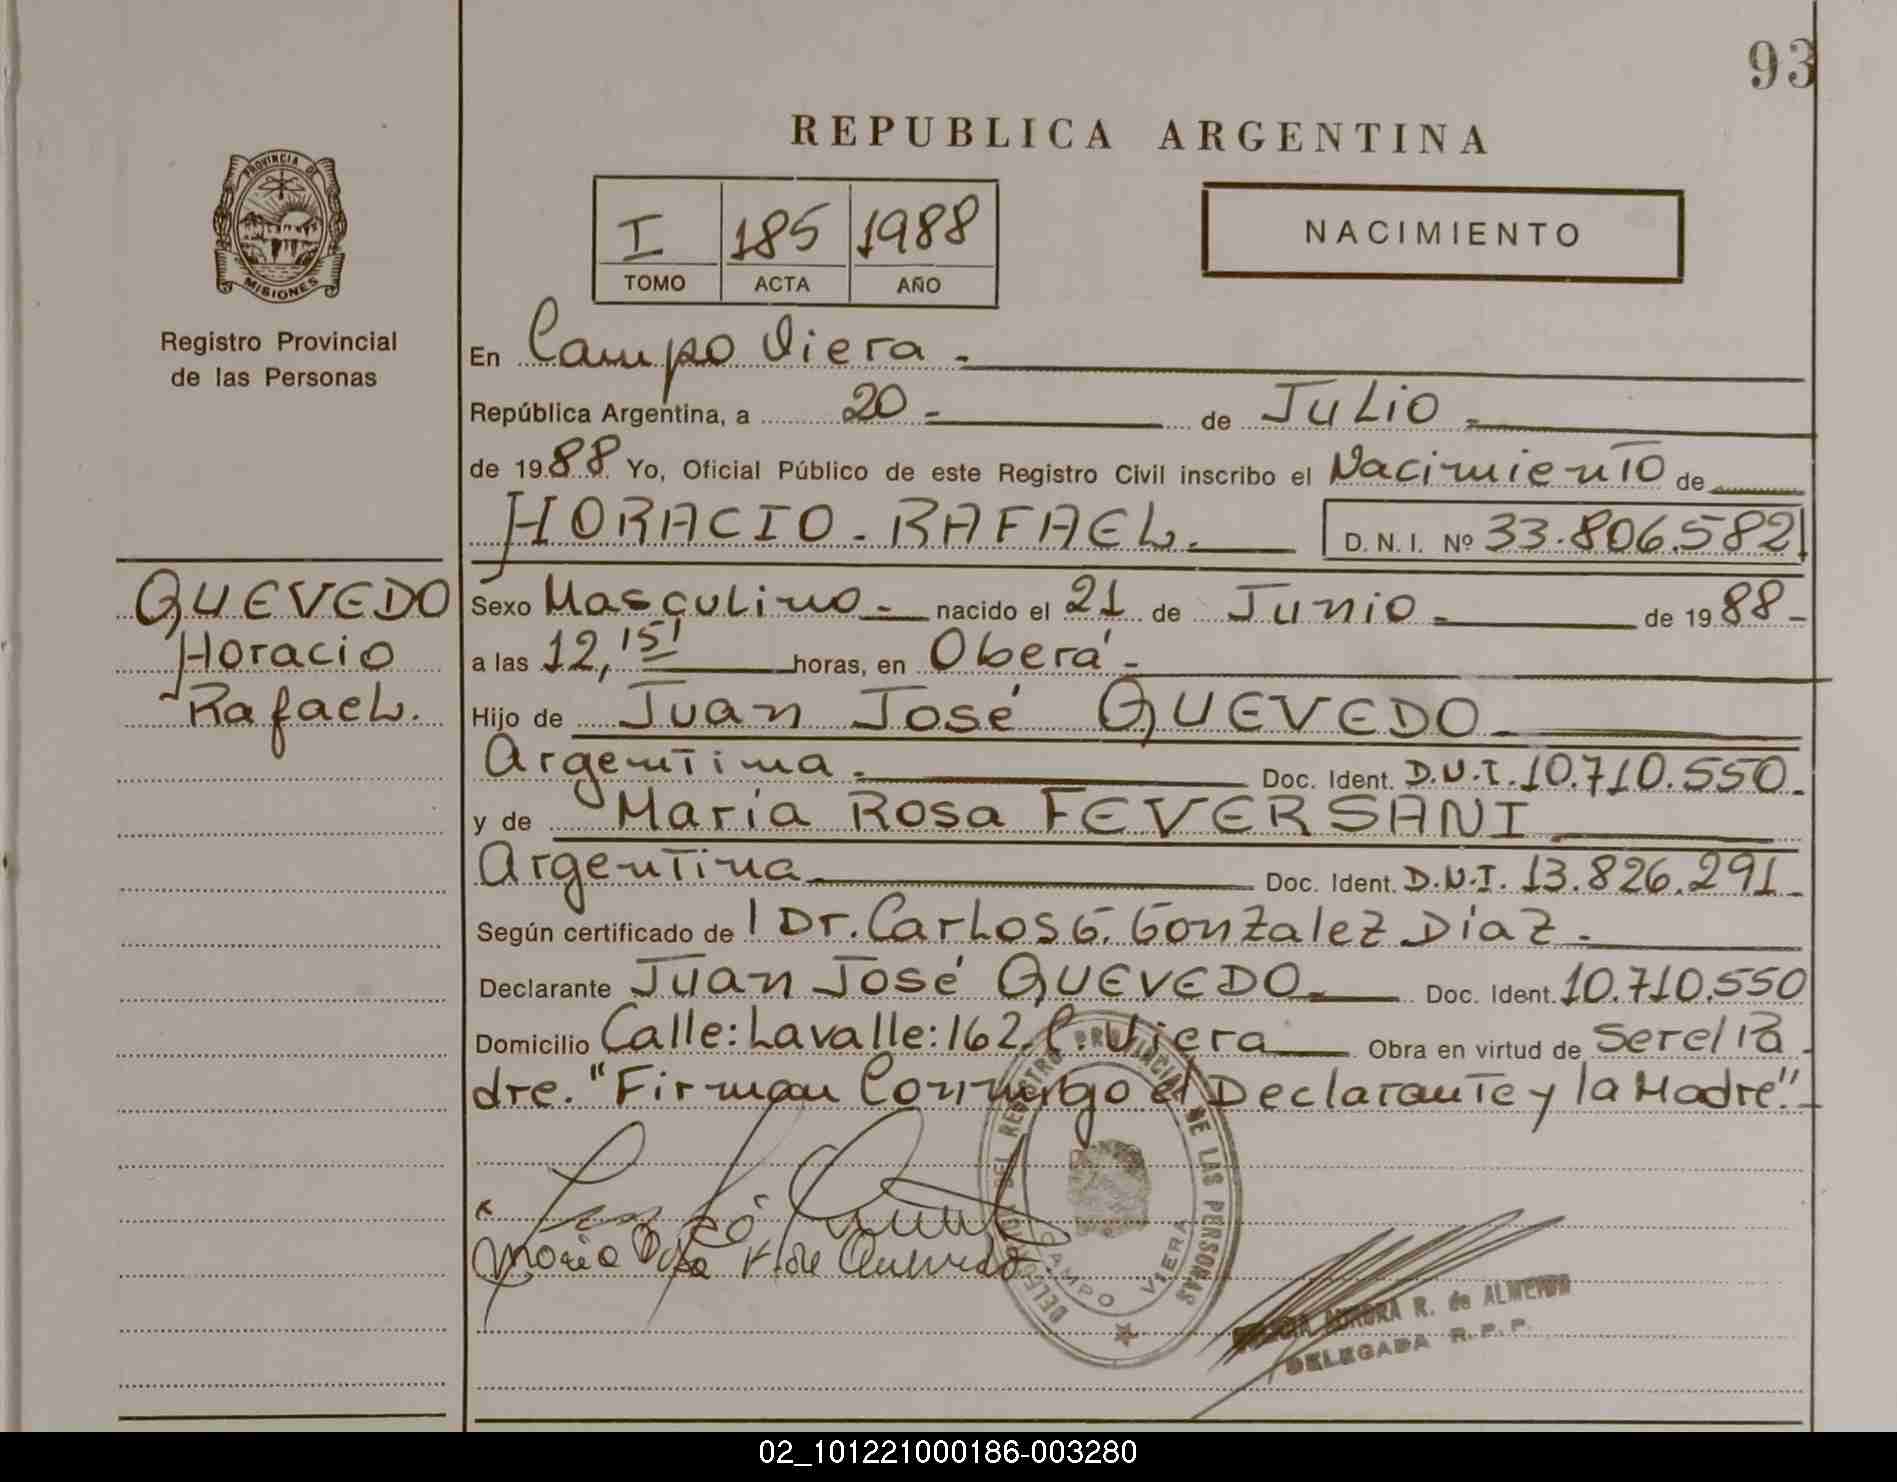 93
REPUBLICA ARGENTINA
PROVINCIA DE
MISIONES
Registro Provincial
de las Personas
I 185 1988
TOMO ACTA AÑO
NACIMIENTO
En Campo Viera.-
República Argentina, a 20.- de Julio.-
de 1988 Yo, Oficial Público de este Registro Civil inscribo el Nacimiento de
HORACIO-RAFAEL. D. N. I. Nº 33.806.582
QUEVEDO
Horacio
Rafael.
Sexo Masculino.- nacido el 21 de Junio.- de 1988-
a las 12,15' horas, en Oberá.-
Hijo de Juan José QUEVEDO
Argentina.- Doc. Ident. D.N.I. 10.710.550.-
y de María Rosa FEVERSANI
Argentina Doc. Ident. D.N.I. 13.826.291-
Según certificado de Dr. Carlos G. Gonzalez Díaz.-
Declarante Juan José QUEVEDO Doc. Ident. 10.710.550
Domicilio Calle: Lavalle: 162. C. Viera Obra en virtud de ser el Pa-
dre. "Firman Conmigo el Declarante y la Madre".-
Maria Rosa F. de Quevedo
DELEGACIA DEL REGISTRO PROVINCIAL DE LAS PERSONAS
CAMPO VIERA
AURORA R. de ALMEIDA
DELEGADA R.P.P.
02_101221000186-003280